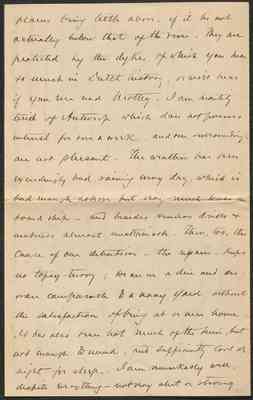 places being little above, if it be not
actually below that of the river. They are
protected by the dykes, of which you hear
so much in Dutch history, or would hear
if you ever read Motley. I am heartily
tired of Antwerp which does not possess
interest for over a week and our surroundings
are not pleasant. The weather has been
exceedingly bad raining every day, which is
bad enough ashore but very much worse
board ship - and besides renders
almost. Then, too, the
cause of our detention - the repairs - keeps
us topsy-turvy; we are in a dock and are
more comparable to a navy yard without
the satisfaction of being at or near home.
We have seen not much of the sun, but
not enough to mind; and sufficiently cool at
night for sleep. I am remarkably well,
despite everything - not very stout or strong